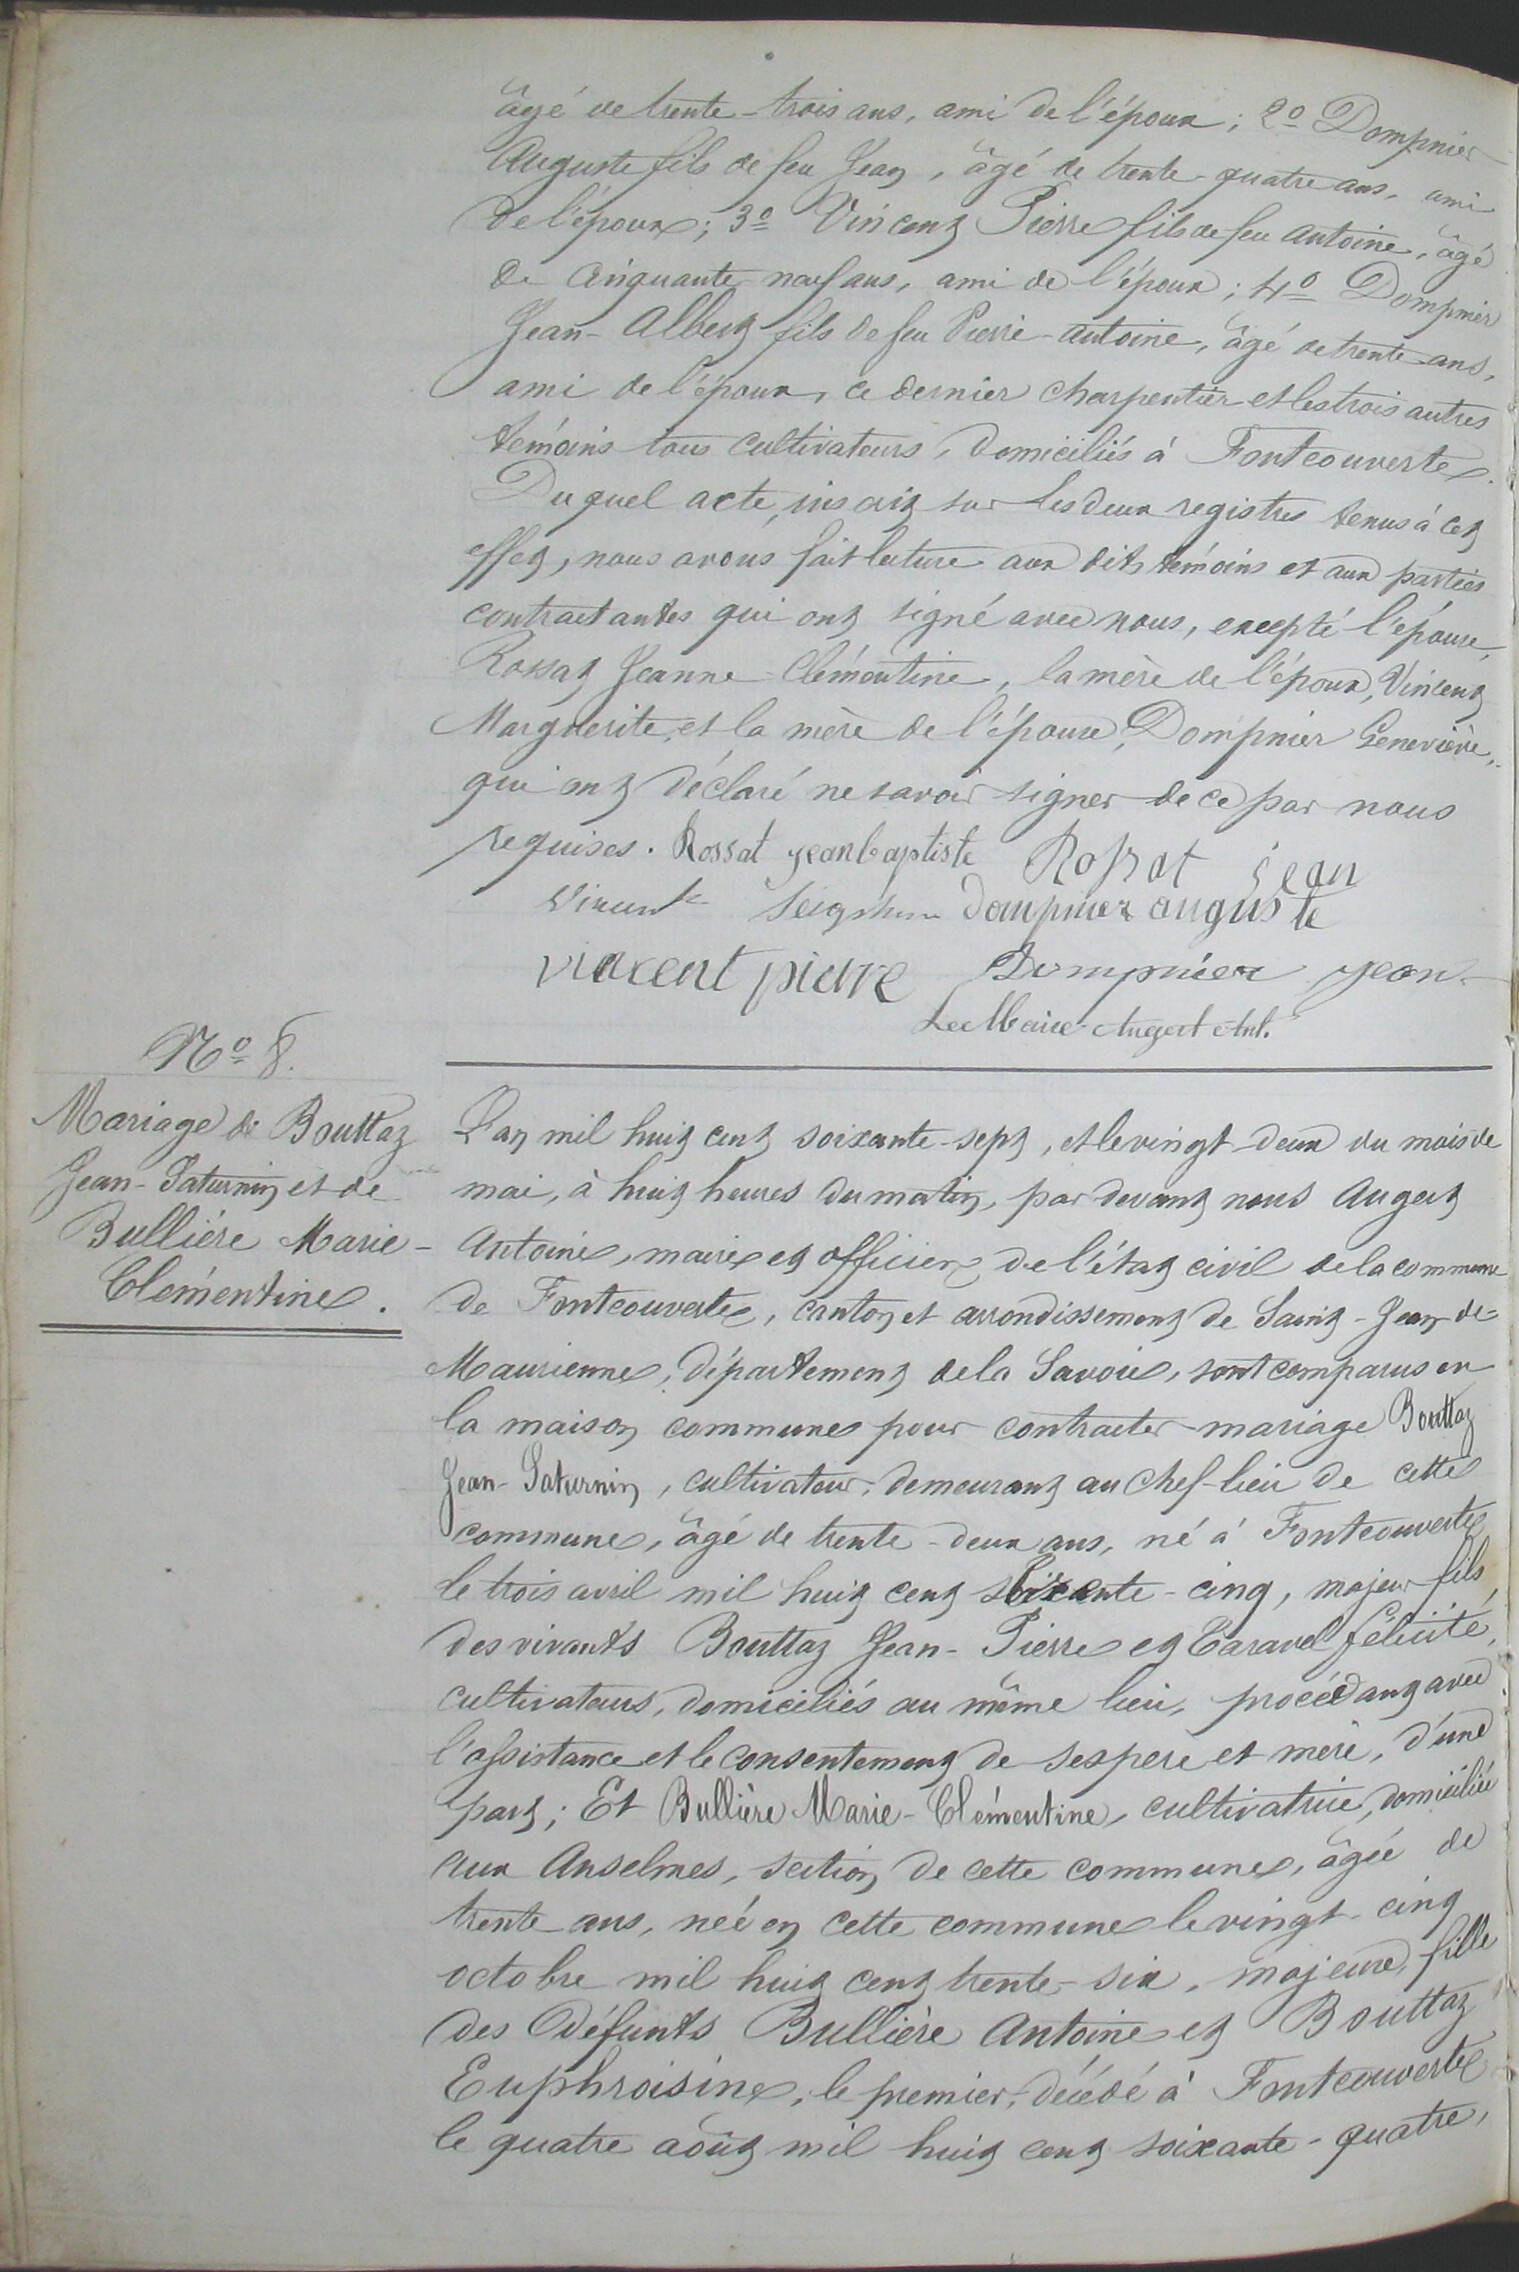 âgé de trente-trois ans, ami de l'époux; 2º Dompnier
Auguste fils de feu Jean, âgé de trente-quatre ans, ami
de l'époux; 3º Vincent Pierre fils de feu Antoine, âgé
de cinquante neuf ans, ami de l'époux; 4º Dompnier
Jean-Albert fils de feu Pierre-Antoine, âgé de trente ans,
ami de l'époux, ce dernier charpentier et les trois autres
témoins tous cultivateurs, domiciliés à Fontcouverte.
Du quel acte, inscrit sur les deux registres tenus à cet
effet, nous avons fait lecture aux dits témoins et aux parties
contractantes qui ont signé avec nous, excepté l'épouse,
Rossat Jeanne-Clémentine, la mère de l'époux, Vincent
Marguerite, et la mère de l'épouse, Dompnier Geneviève,
qui ont déclaré ne savoir signer de ce par nous
requises. Rossat jean baptiste Rossat jean
Vincent dompnier auguste
vincent pierre Dompnier jean
Le Maire Augert Ant.
Nº 8.
Mariage de Bouttaz
Jean-Saturnin et de
Bullière Marie-
Clémentine.
L'an mil huit cent soixante-sept, et le vingt-deux du mois de
mai, à huit heures du matin, par devant nous Augert
Antoine, maire et officier de l'état civil de la commune
de Fontcouverte, canton et arrondissement de Saint-Jean-de-
Maurienne, département de la Savoie, sont comparus en
la maison commune pour contracter mariage Bouttaz
Jean-Saturnin, cultivateur, demeurant au chef-lieu de cette
commune, âgé de trente-deux ans, né à Fontcouverte
le trois avril mil huit cent soixante-cinq, majeur, fils
des vivants Bouttaz Jean-Pierre et Taravel félicité,
cultivateurs, domiciliés au même lieu, procédant avec
l'assistance et le consentement de ses père et mère, d'une
part; Et Bullière Marie-Clémentine, cultivatrice, domiciliée
aux Anselmes, section de cette commune, âgée de
trente ans, née en cette commune le vingt-cinq
octobre mil huit cent trente-six, majeure, fille
des défunts Bullière Antoine et Bouttaz
Euphroisine, le premier, décédé à Fontcouverte
le quatre août mil huit cent soixante-quatre,